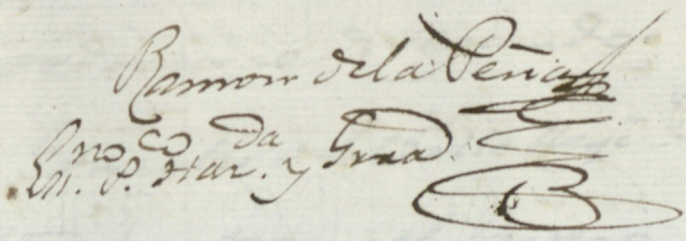 Ramon de la Peña
Esno. Pco. Hacda. y Grra.